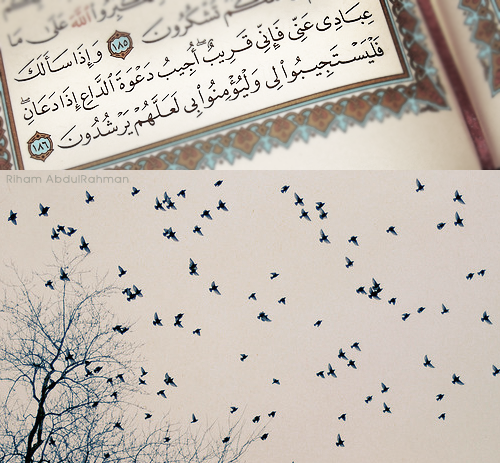 تَشْكُرُونَ ١٨٥ وَإِذَا سَأَلَكَ
عِبَادِى عَنِّى فَإِنِّى قَرِيبٌ أُجِيبُ دَعْوَةَ ٱلدَّاعِ إِذَا دَعَانِ
فَلْيَسْتَجِيبُوا۟ لِى وَلْيُؤْمِنُوا۟ بِى لَعَلَّهُمْ يَرْشُدُونَ ١٨٦
Riham AbdulRahman